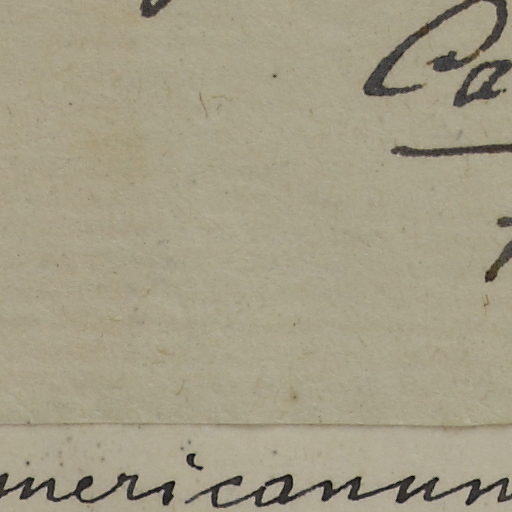 Ca
mericanum